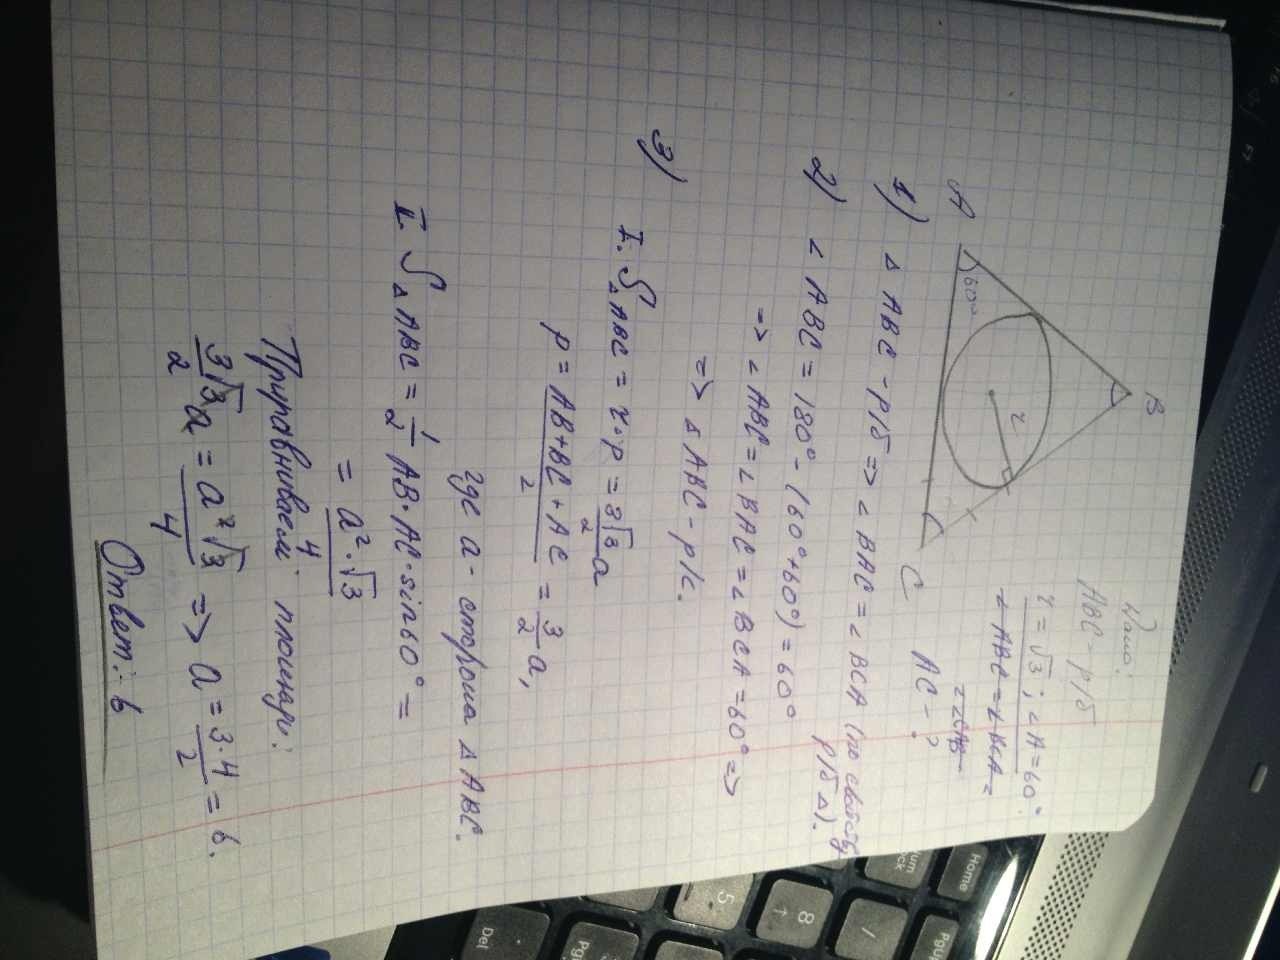 Дано:
ABC - р/б
r = √3; ∠A = 60°
∠ABC = ∠BCA =
= ∠CAB
AC - ?
B
A
60°
r
C
1) △ ABC - р/б => ∠ BAC = ∠ BCA (по свойству
р/б △).
2) ∠ ABC = 180° - (60° + 60°) = 60°
=> ∠ ABC = ∠ BAC = ∠ BCA = 60° =>
=> △ ABC - р/с.
3)
I. S △ ABC = r · p = 3√3/2 a
p = AB + BC + AC / 2 = 3/2 a,
где a - сторона △ ABC.
I. S △ ABC = 1/2 AB · AC · sin 60° =
= a² · √3 / 4
Приравниваем площади:
3√3/2 a = a²√3/4 => a = 3·4/2 = 6.
Ответ: 6
Home
Num Lock
PgUp
/
8 ↑
5
Del